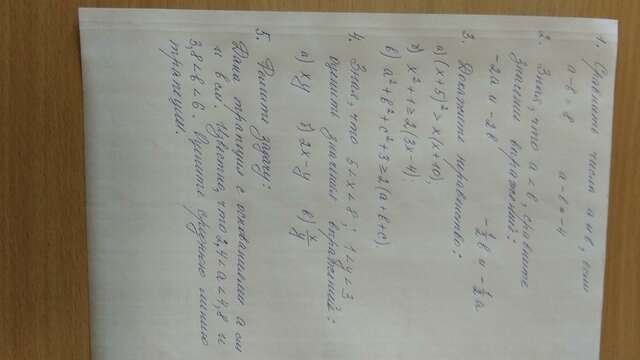 1. Сравнить числа а и в, если
а-в = 8   а-в = -4
2. Зная, что а < в, сравните
значения выражений:
-2а и -2в   -½в и -½а
3. Докажите неравенство:
а) (х+5)² > х(х+10);
б) х²+1 ≥ 2(3х-4);
в) а²+в²+с²+3 ≥ 2(а+в+с)
4. Зная, что 5<х<8; 1<у<3
оценить значения выражений:
а) ху   б) 2х-у   в) х/у
5. Решите задачу:
Дана трапеция с основаниями а см
и в см. Известно, что 2,4<а<4,8 и
3,8<в<6. Оцените среднюю линию
трапеции.